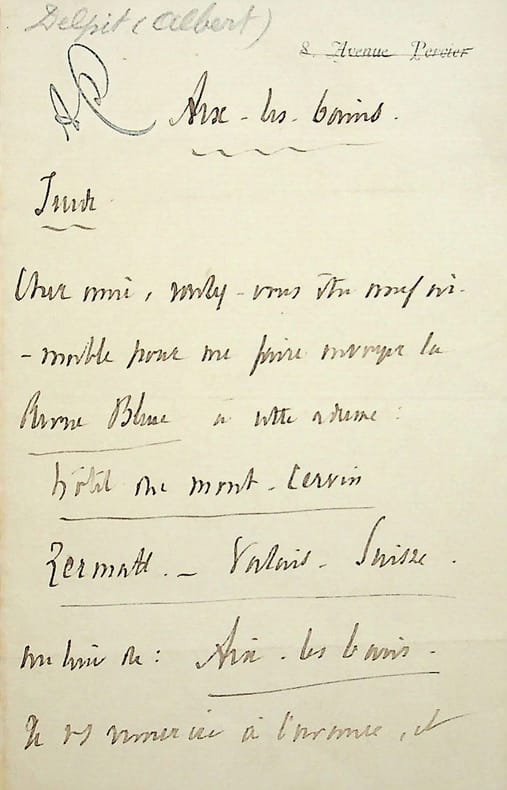 Delpit (Albert)
8, Avenue Percier
Aix-les-bains.
Jeudi
Cher ami, voulez-vous être assez ai-
-mable pour me faire envoyer la
Revue Bleue à cette adresse :
hôtel du mont-Cervin
Zermatt. - Valais - Suisse.
au lieu de : Aix-les bains.
Je vs remercie à l'avance, et